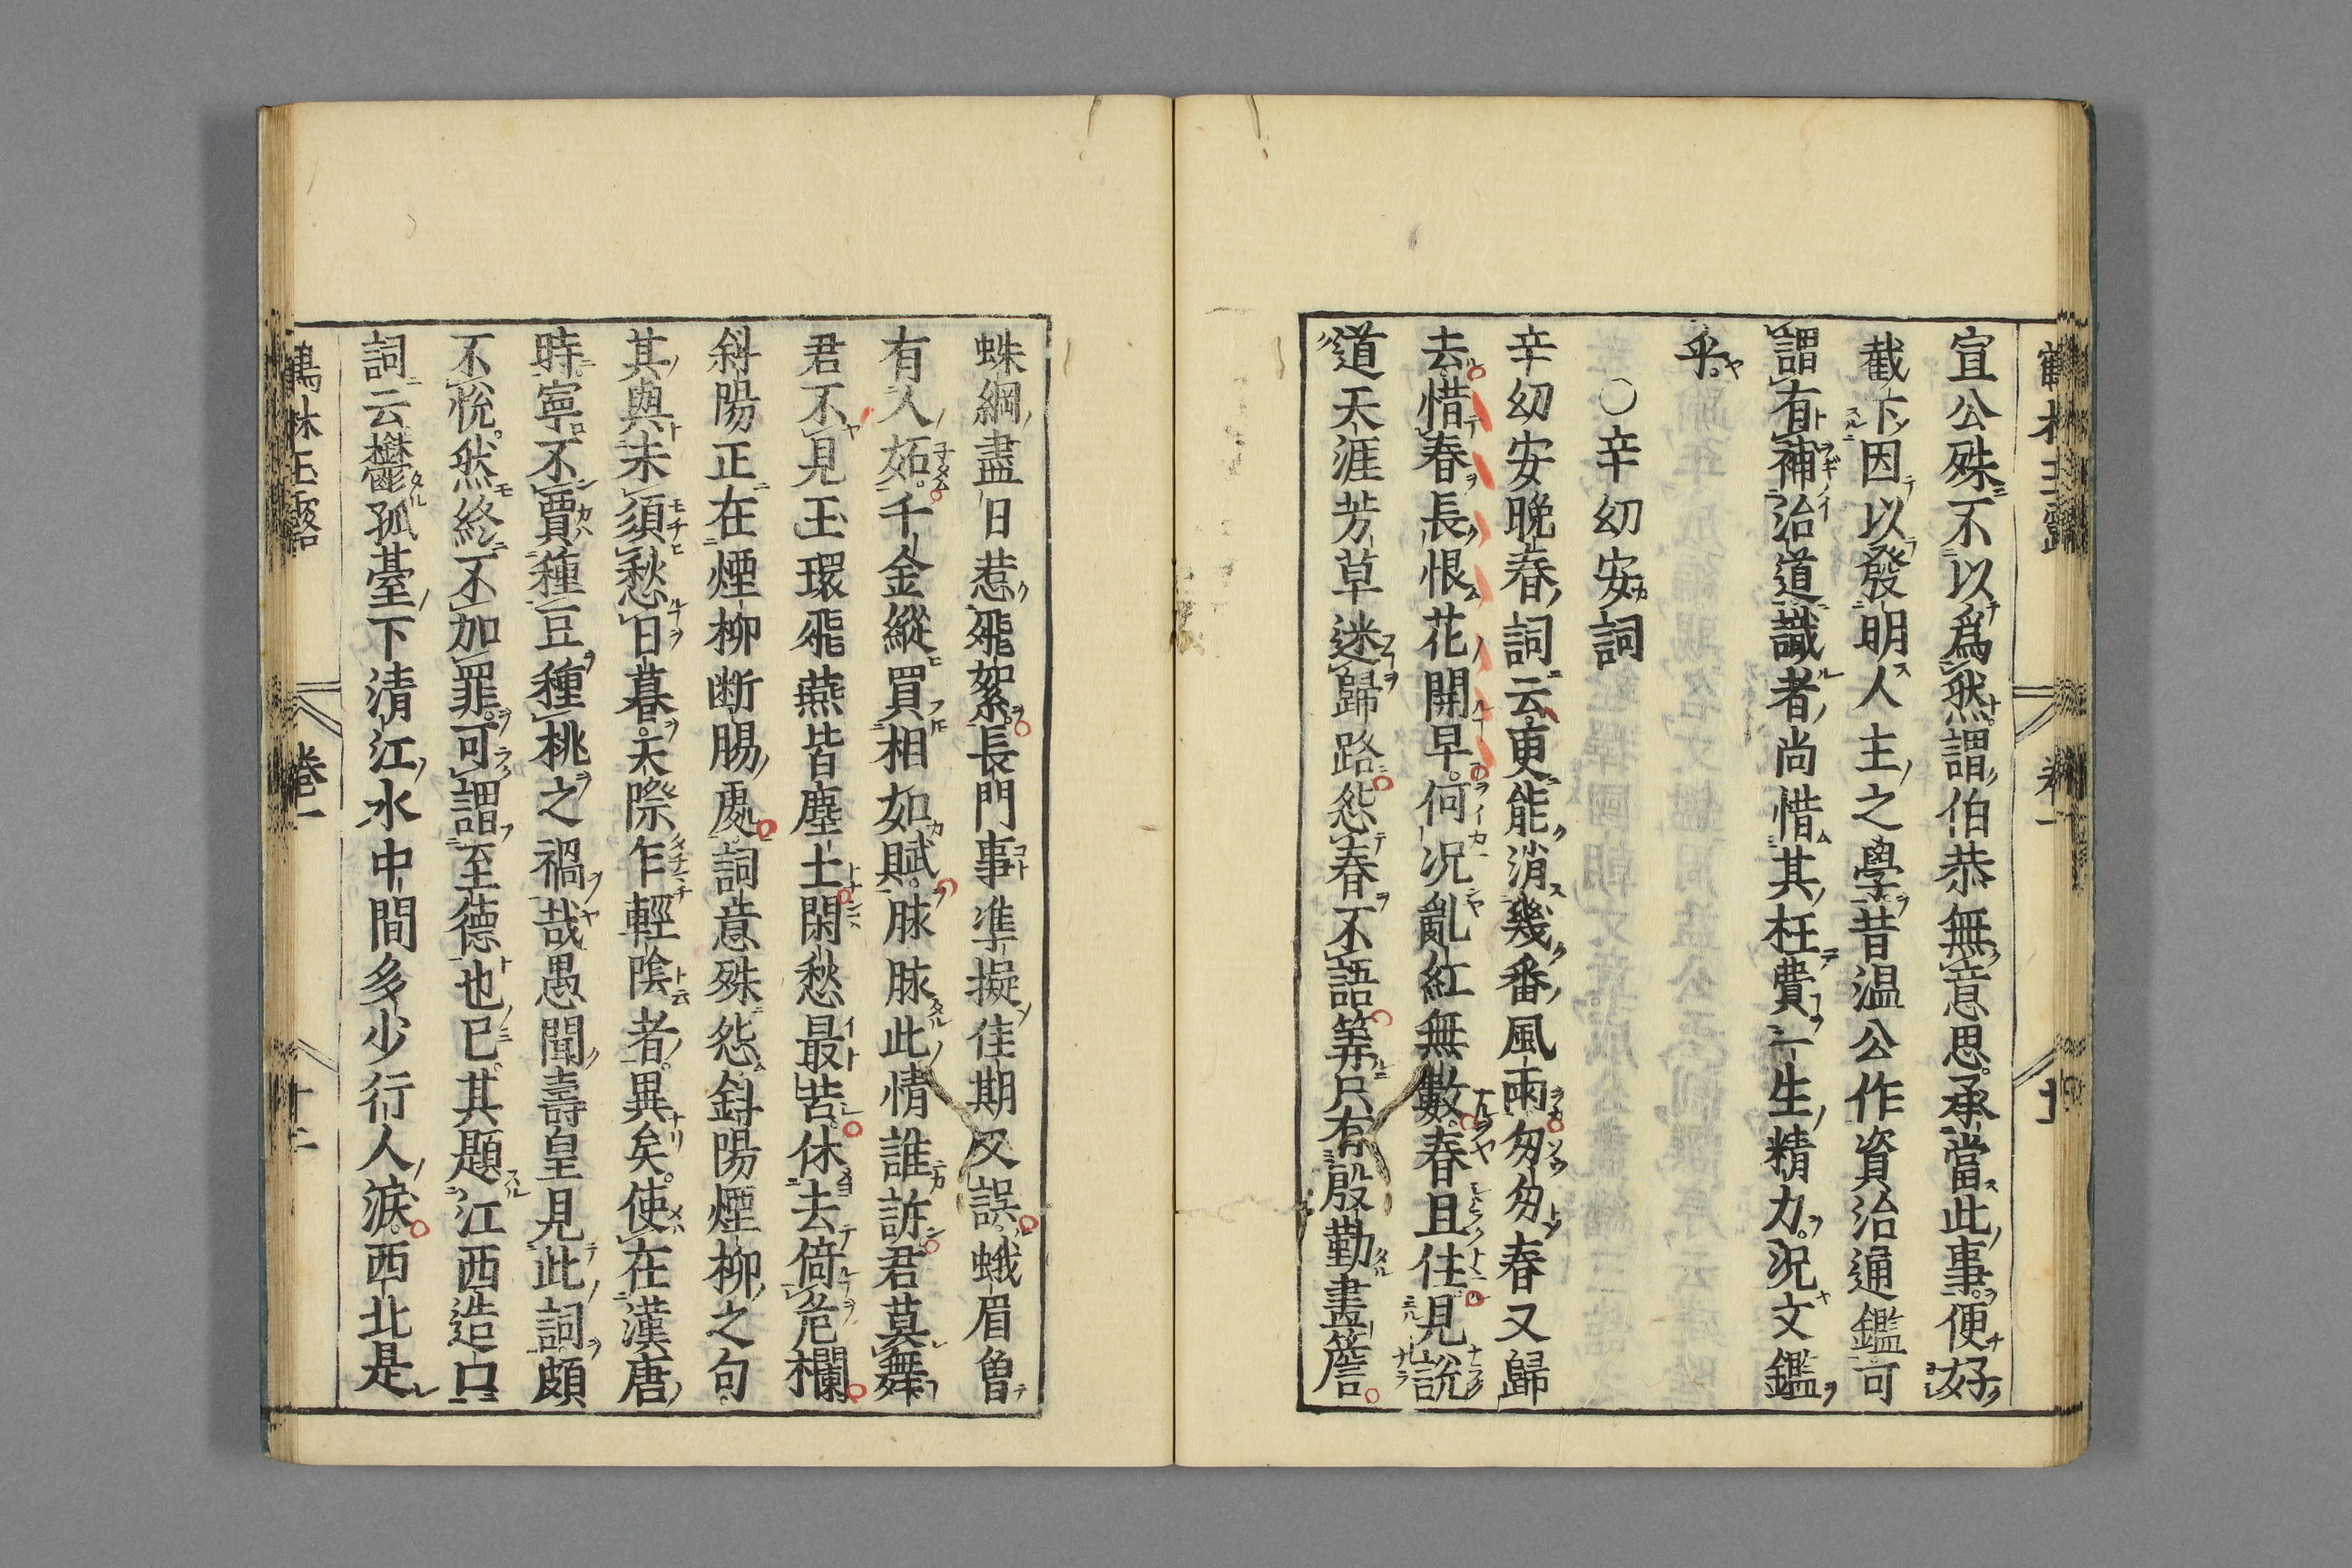 宣公殊不以爲然謂伯恭無意思承當此事便好
截下因以發明人主之學昔温公作資治通鑑可
謂有補治道識者尚惜其枉費一生精力况文鑑
乎
○辛幼安詞
辛幼安晚春詞云更能消幾番風雨匆匆春又歸
去惜春長恨花開早何况亂紅無數春且住見說
道天涯芳草迷歸路怨春不語筭只有殷勤畫簷
蛛網盡日惹飛絮長門事準擬佳期又誤蛾眉曾
有人妬千金縱買相如賦脉脉此情誰訴君莫舞
君不見玉環飛燕皆塵土閑愁最苦休去倚危欄
斜陽正在煙柳断腸處詞意殊怨斜陽煙柳之句
其與未須愁日暮天際乍輕陰者異矣使在漢唐
時寧不賈種豆種桃之禍哉愚聞壽皇見此詞頗
不恱然終不加罪可謂至德也已其題江西造口
詞云欝孤臺下清江水中間多少行人淚西北是
鶴林玉露 卷一 十二